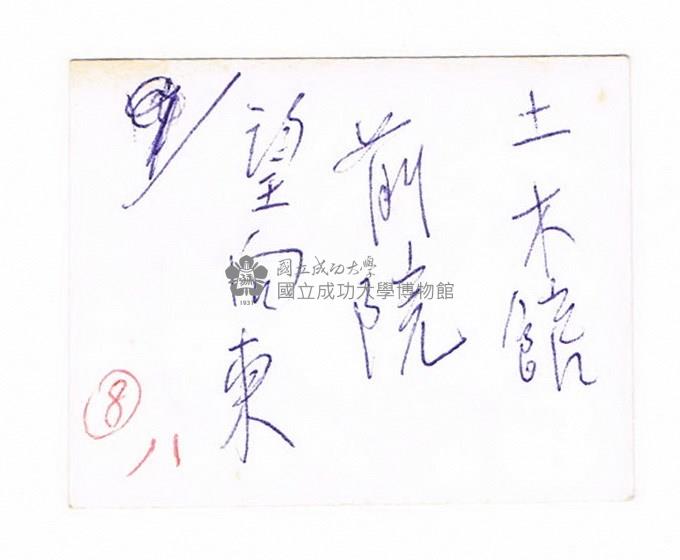 土木館
前院
望向東
⑧
八
國立成功大學
國立成功大學博物館
1931